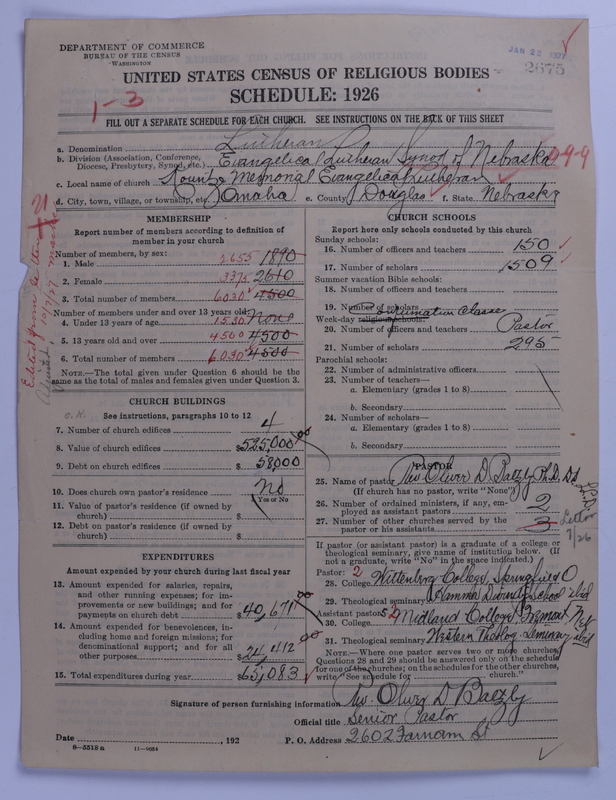 DEPARTMENT OF COMMERCE
BUREAU OF THE CENSUS
WASHINGTON
JAN 22 1927
2675
UNITED STATES CENSUS OF RELIGIOUS BODIES
SCHEDULE: 1926
1-3
FILL OUT A SEPARATE SCHEDULE FOR EACH CHURCH. SEE INSTRUCTIONS ON THE BACK OF THIS SHEET
a. Denomination Lutheran
b. Division (Association, Conference, Diocese, Presbytery, Synod, etc.) Evangelical Lutheran Synod of Nebraska
c. Local name of church Kountze Memorial Evangelical Lutheran
d. City, town, village, or township, etc. Omaha e. County Douglas f. State Nebraska
MEMBERSHIP
Report number of members according to definition of
member in your church
Number of members, by sex:
1. Male 2655 1890
2. Female 3375 2610
3. Total number of members 6030 4500
Number of members under and over 13 years old:
4. Under 13 years of age 1530 None
5. 13 years old and over 4500 4500
6. Total number of members 6030 4500
NOTE.—The total given under Question 6 should be the
same as the total of males and females given under Question 3.
CHURCH BUILDINGS
O.K. See instructions, paragraphs 10 to 12
7. Number of church edifices 4
8. Value of church edifices $525,000 00
9. Debt on church edifices $58000
10. Does church own pastor's residence No
Yes or No
11. Value of pastor's residence (if owned by
church) $
12. Debt on pastor's residence (if owned by
church) $
EXPENDITURES
Amount expended by your church during last fiscal year
13. Amount expended for salaries, repairs,
and other running expenses; for im-
provements or new buildings; and for
payments on church debt $40,671 00
14. Amount expended for benevolences, in-
cluding home and foreign missions; for
denominational support; and for all
other purposes $24,412 00
15. Total expenditures during year $65,083
CHURCH SCHOOLS
Report here only schools conducted by this church
Sunday schools:
16. Number of officers and teachers 150
17. Number of scholars 1509
Summer vacation Bible schools:
18. Number of officers and teachers
19. Number of scholars
Week-day religious schools: Confirmation Classe
20. Number of officers and teachers Pastor
21. Number of scholars 295
Parochial schools:
22. Number of administrative officers
23. Number of teachers—
a. Elementary (grades 1 to 8)
b. Secondary
24. Number of scholars—
a. Elementary (grades 1 to 8)
b. Secondary
PASTOR
25. Name of pastor Rev Oliver D. Baltzly Ph.D., D.d
(If church has no pastor, write "None")
26. Number of ordained ministers, if any, em-
ployed as assistant pastors 2
27. Number of other churches served by the
pastor or his assistants 3
If pastor (or assistant pastor) is a graduate of a college or
theological seminary, give name of institution below. (If
not a graduate, write "No" in the space indicated.)
Pastor: 2
28. College Wittenberg College, Springfield O
29. Theological seminary Hamma Divinity School ibid
Assistant pastor: 52
30. College Midland College Fremont Neb
31. Theological seminary Western Theolog. Seminary ibid
NOTE.—Where one pastor serves two or more churches,
Questions 28 and 29 should be answered only on the schedule
for one of the churches; on the schedules for the other churches,
write "See schedule for church."
Signature of person furnishing information Rev. Oliver D Baltzly
Official title Senior Pastor
Date , 192 P. O. Address 2602 Farnam St
8—5518 a 11—9034